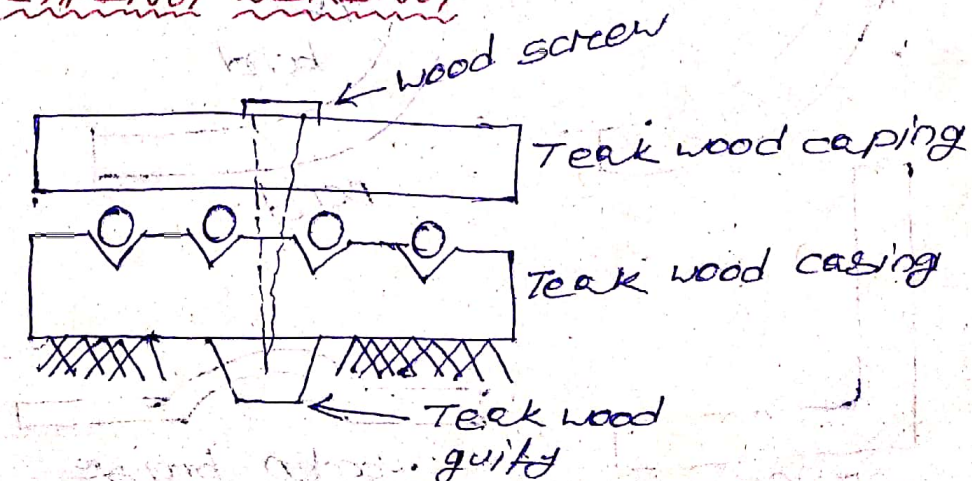 wood screw
Teak wood caping
Teak wood casing
Teak wood
guity